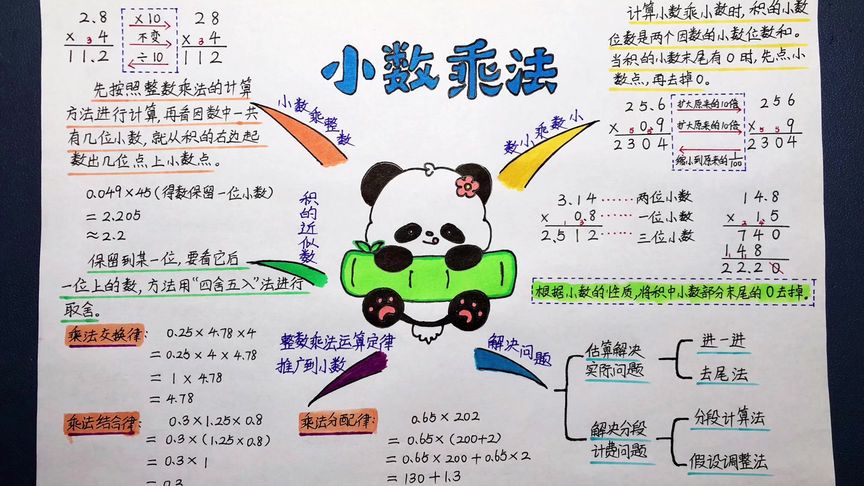 小数乘法
2.8
× 4
11.2
×10
不变
÷10
28
× 4
112
先按照整数乘法的计算
方法进行计算,再看因数中一共
有几位小数,就从积的右边起
数出几位点上小数点。
小数乘整数
0.049×45(得数保留一位小数)
=2.205
≈2.2
保留到某一位,要看它后
一位上的数,方法用“四舍五入”法进行
取舍。
积的近似数
计算小数乘小数时,积的小数
位数是两个因数的小数位数和。
当积的小数末尾有0时,先点小
数点,再去掉0。
小数乘小数
25.6
× 0.9
23.04
扩大原来的10倍
扩大原来的10倍
缩小到原来的1/100
256
× 9
2304
3.14……两位小数
× 0.8……一位小数
2.512……三位小数
14.8
× 1.5
740
148
22.20
根据小数的性质,将积中小数部分末尾的0去掉。
乘法交换律:
0.25×4.78×4
=0.25×4×4.78
=1×4.78
=4.78
乘法结合律:
0.3×1.25×0.8
=0.3×(1.25×0.8)
=0.3×1
=0.3
整数乘法运算定律
推广到小数
乘法分配律:
0.65×202
=0.65×(200+2)
=0.65×200+0.65×2
=130+1.3
解决问题
估算解决
实际问题
进一进
去尾法
解决分段
计费问题
分段计算法
假设调整法